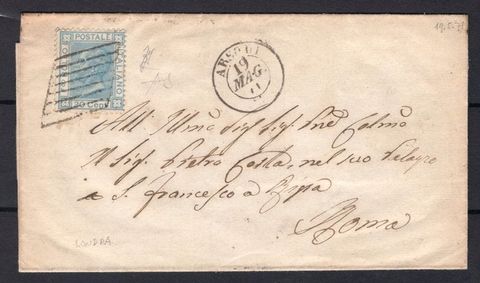 19.5.71
POSTALE
ITALIANO
20 Cent
ARSOLI
19
MAG.
71
All' Illmo Sig. Sig. Pne Colmo
Il Sig. Pietro Costa, nel suo Palazzo
a S. Francesco a Ripa
Roma
LONDRA